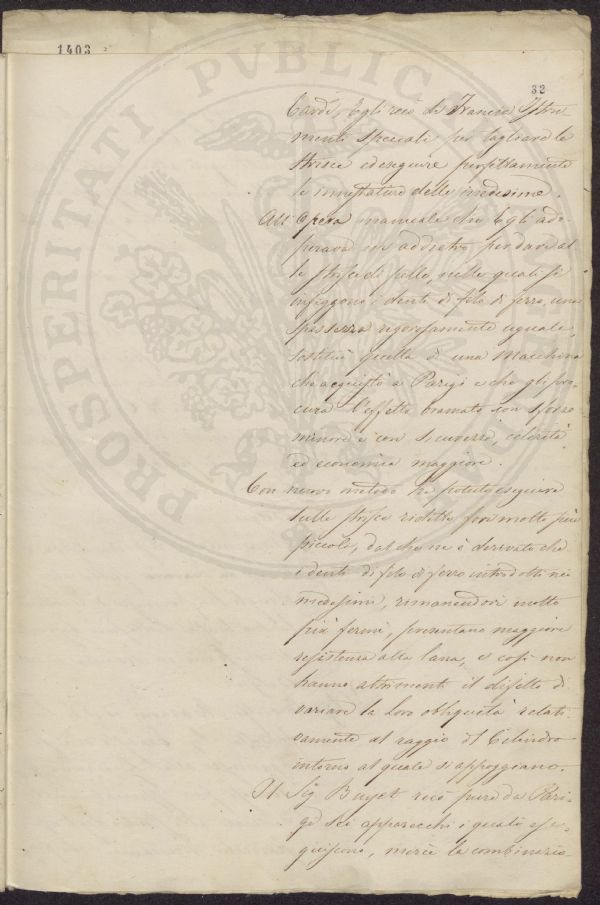 1403
32
Cardi, Egli recò di Francia Istru
menti speciali per tagliare le
strisce ed eseguire perfettamente
le innestature delle medesime.
All'Opera manuale che Egli ado
perava in addietro per dare al
le strisce di pelle, nelle quali si
infiggono i denti di filo di ferro, una
spessezza rigorosamente uguale,
sostituì quella di una Macchina
che acquistò a Parigi e che gli pro
cura l'effetto bramato con sforzo
minore e con sicurezza, celerità
ed economia maggiore.
Con nuovo metodo ha potuto eseguire
sulle strisce ridette fori molto più
piccoli, dal che ne è derivato che
i denti di filo di ferro introdotti nei
medesimi, rimanendovi molto
più fermi, presentano maggiore
resistenza alla lana, e così non
hanno altrimenti il difetto di
variare la loro obliquità relati
vamente al raggio del Cilindro
intorno al quale si appoggiano.
Il Sig Buyet recò pure da Pari
gi sei apparecchi i quali ese
guiscono, mercè la combinazio
PROSPERITATI PUBLICAE